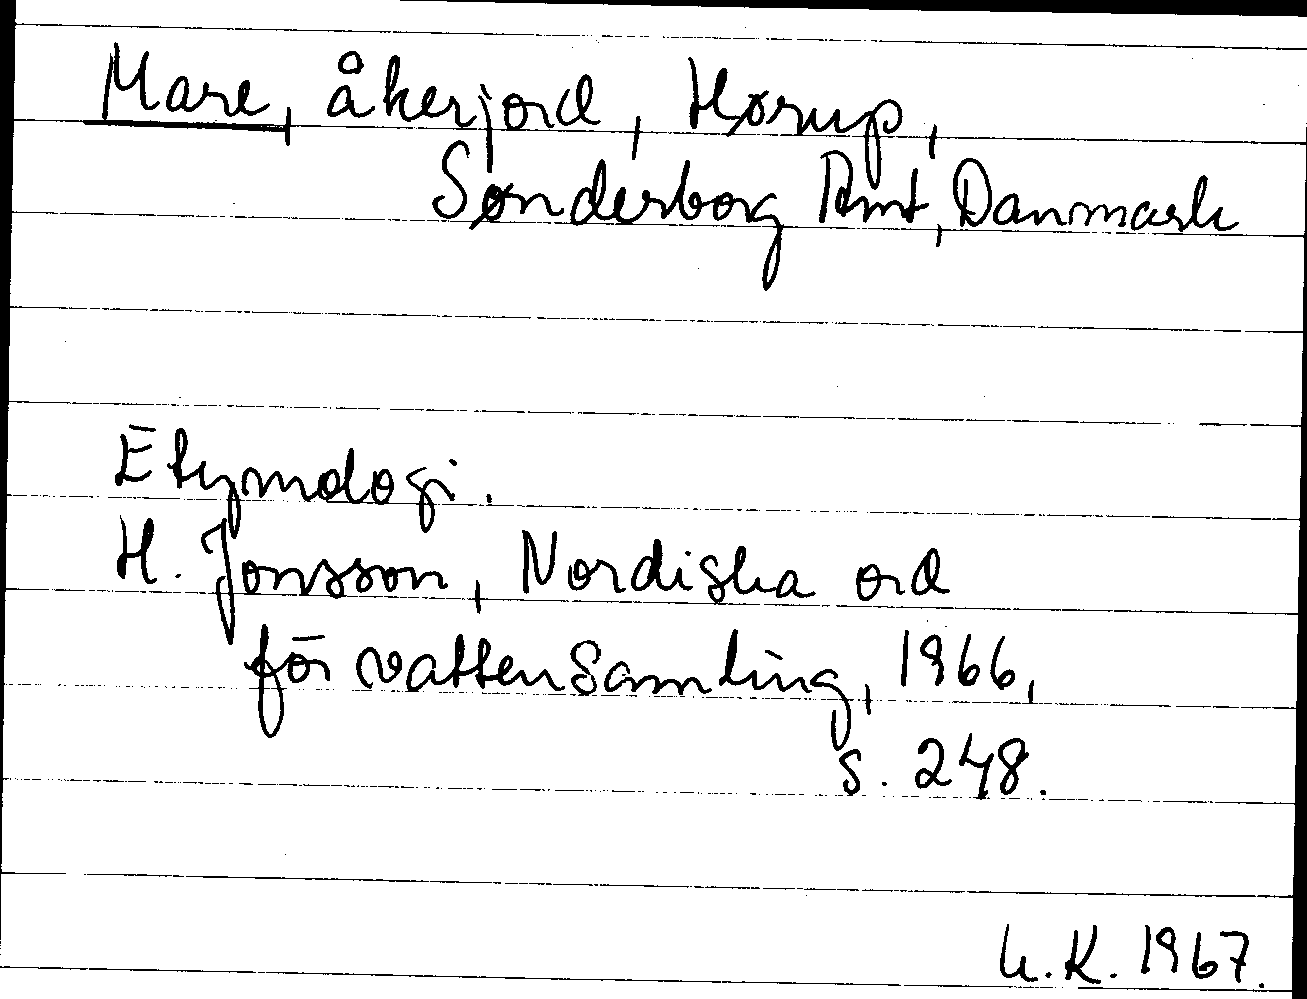 Mare, åkerjord, Hørup,
Sønderborg Amt, Danmark
Etymologi.
H. Jonsson, Nordiska ord
för vattensamling, 1966,
s. 248.
U.K. 1967.